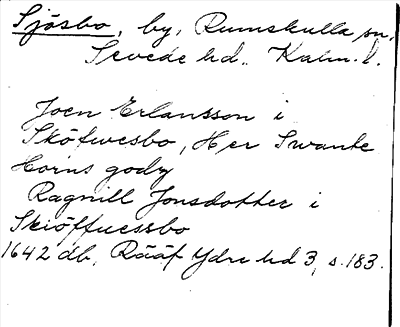 Sjösbo, by, Rumskulla sn,
Sevede hd. Kalm. l.
Joen Erlansson i
Sköfwesbo, Her Swante
Horns godz
Ragnill Jonsdotter i
Skiöffuessbo
1642 db, Rääf Ydre hd 3, s. 183.